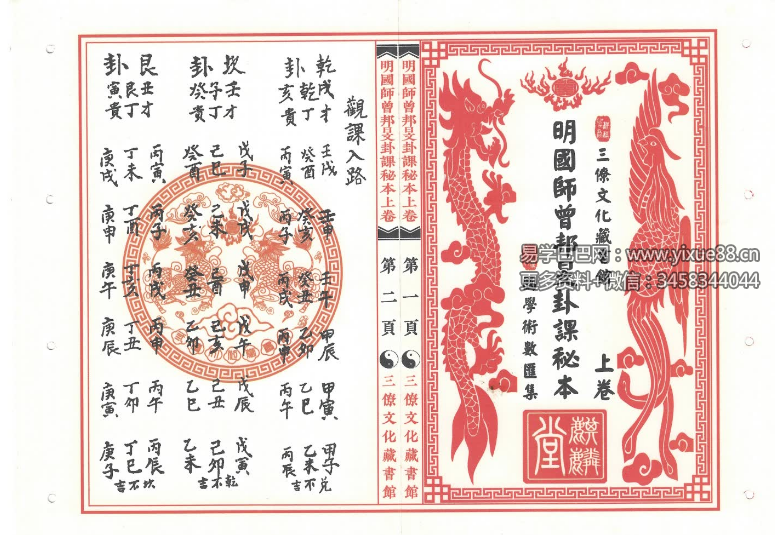 三僚文化藏書館
明國師曾邦旻卦課秘本
上卷
學術數匯集
麒麟堂
易学巴巴网：www.yixue88.cn
更多资料+微信：3458344044
明國師曾邦旻卦課秘本上卷 第一頁 三僚文化藏書館
明國師曾邦旻卦課秘本上卷 第二頁 三僚文化藏書館
觀課入路
乾卦
戌才 壬戌 壬申 壬午 甲辰 甲寅 甲子 兌
乾丁 癸酉 癸亥 癸丑 乙卯 乙巳 乙未 不
亥貴 丙寅 丙子 丙戌 丙申 丙午 丙辰 吉
坎卦
壬才 戊子 戊戌 戊申 戊午 戊辰 戊寅 乾
子丁 己巳 己未 己酉 己亥 己丑 己卯 不
癸貴 癸酉 癸亥 癸丑 乙卯 乙巳 乙未 吉
艮卦
丑才 丙寅 丙子 丙戌 丙申 丙午 丙辰 坎
艮丁 丁未 丁酉 丁亥 丁丑 丁卯 丁巳 不
寅貴 庚戌 庚申 庚午 庚辰 庚寅 庚子 吉